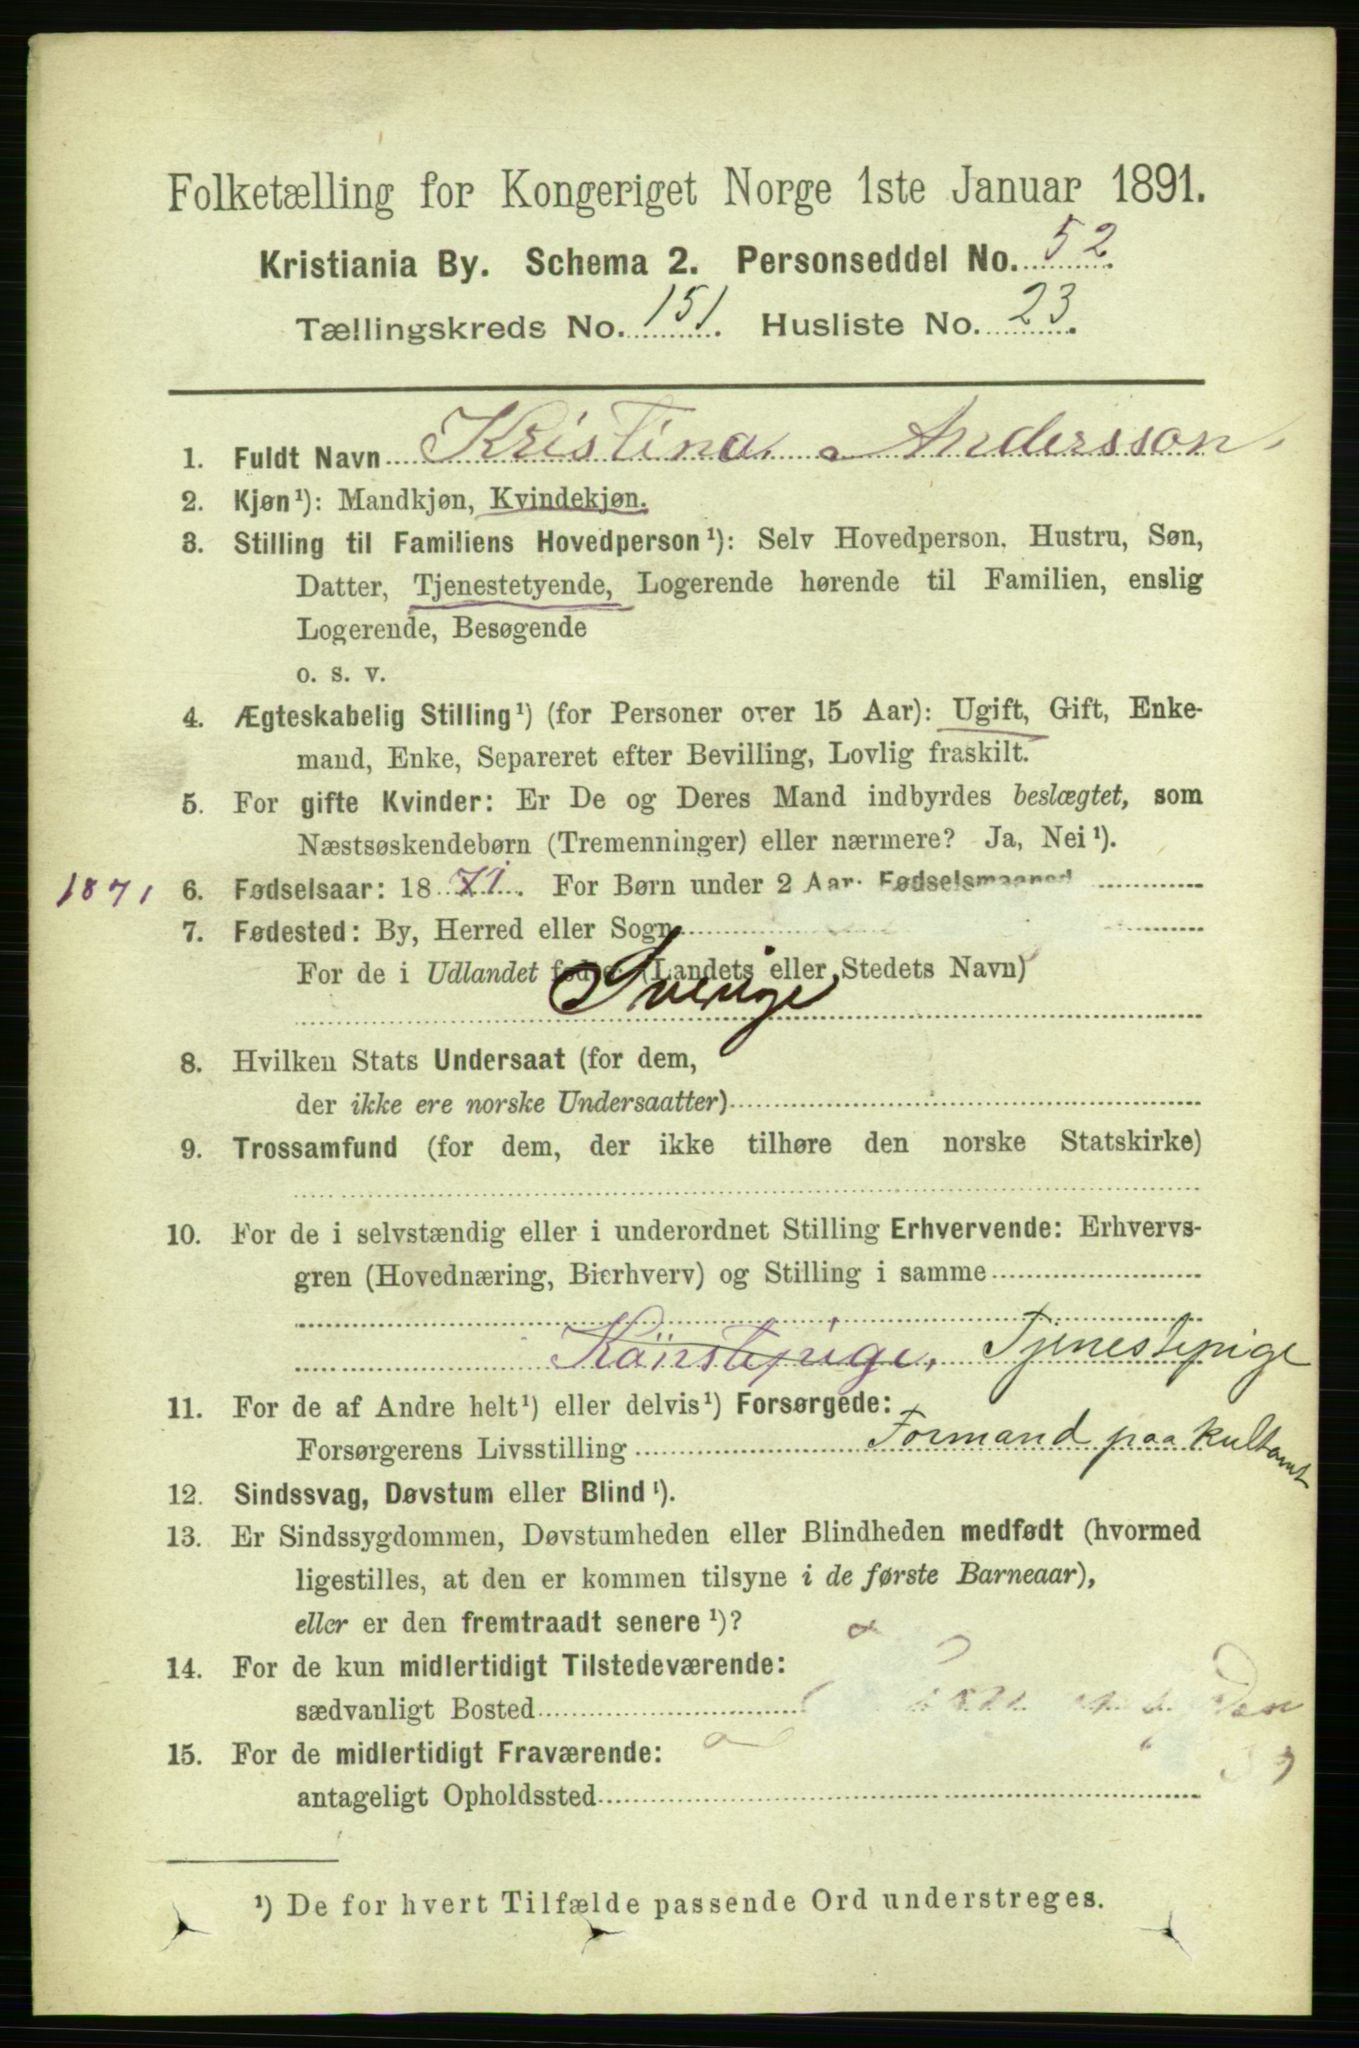 Folketælling for Kongeriget Norge 1ste Januar 1891.
Kristiania By. Schema 2. Personseddel No. 52.
Tællingskreds No. 151. Husliste No. 23.
1. Fuldt Navn Kristina Andersson
2. Kjøn¹): Mandkjøn, Kvindekjøn.
3. Stilling til Familiens Hovedperson¹): Selv Hovedperson, Hustru, Søn,
Datter, Tjenestetyende, Logerende hørende til Familien, enslig
Logerende, Besøgende
o. s. v.
4. Ægteskabelig Stilling¹) (for Personer over 15 Aar): Ugift, Gift, Enke-
mand, Enke, Separeret efter Bevilling, Lovlig fraskilt.
5. For gifte Kvinder: Er De og Deres Mand indbyrdes beslægtet, som
Næstsøskendebørn (Tremenninger) eller nærmere? Ja, Nei¹).
1871 6. Fødselsaar: 1871. For Børn under 2 Aar: Fødselsmaaned
7. Fødested: By, Herred eller Sogn
For de i Udlandet fødte (Landets eller Stedets Navn)
Sverige
8. Hvilken Stats Undersaat (for dem,
der ikke ere norske Undersaatter)
9. Trossamfund (for dem, der ikke tilhøre den norske Statskirke)
10. For de i selvstændig eller i underordnet Stilling Erhvervende: Erhvervs-
gren (Hovednæring, Bierhverv) og Stilling i samme
Tjenestepige
11. For de af Andre helt¹) eller delvis¹) Forsørgede:
Forsørgerens Livsstilling Formand paa kultomt
12. Sindssvag, Døvstum eller Blind¹).
13. Er Sindssygdommen, Døvstumheden eller Blindheden medfødt (hvormed
ligestilles, at den er kommen tilsyne i de første Barneaar),
eller er den fremtraadt senere¹)?
14. For de kun midlertidigt Tilstedeværende:
sædvanligt Bosted
15. For de midlertidigt Fraværende:
antageligt Opholdssted
¹) De for hvert Tilfælde passende Ord understreges.